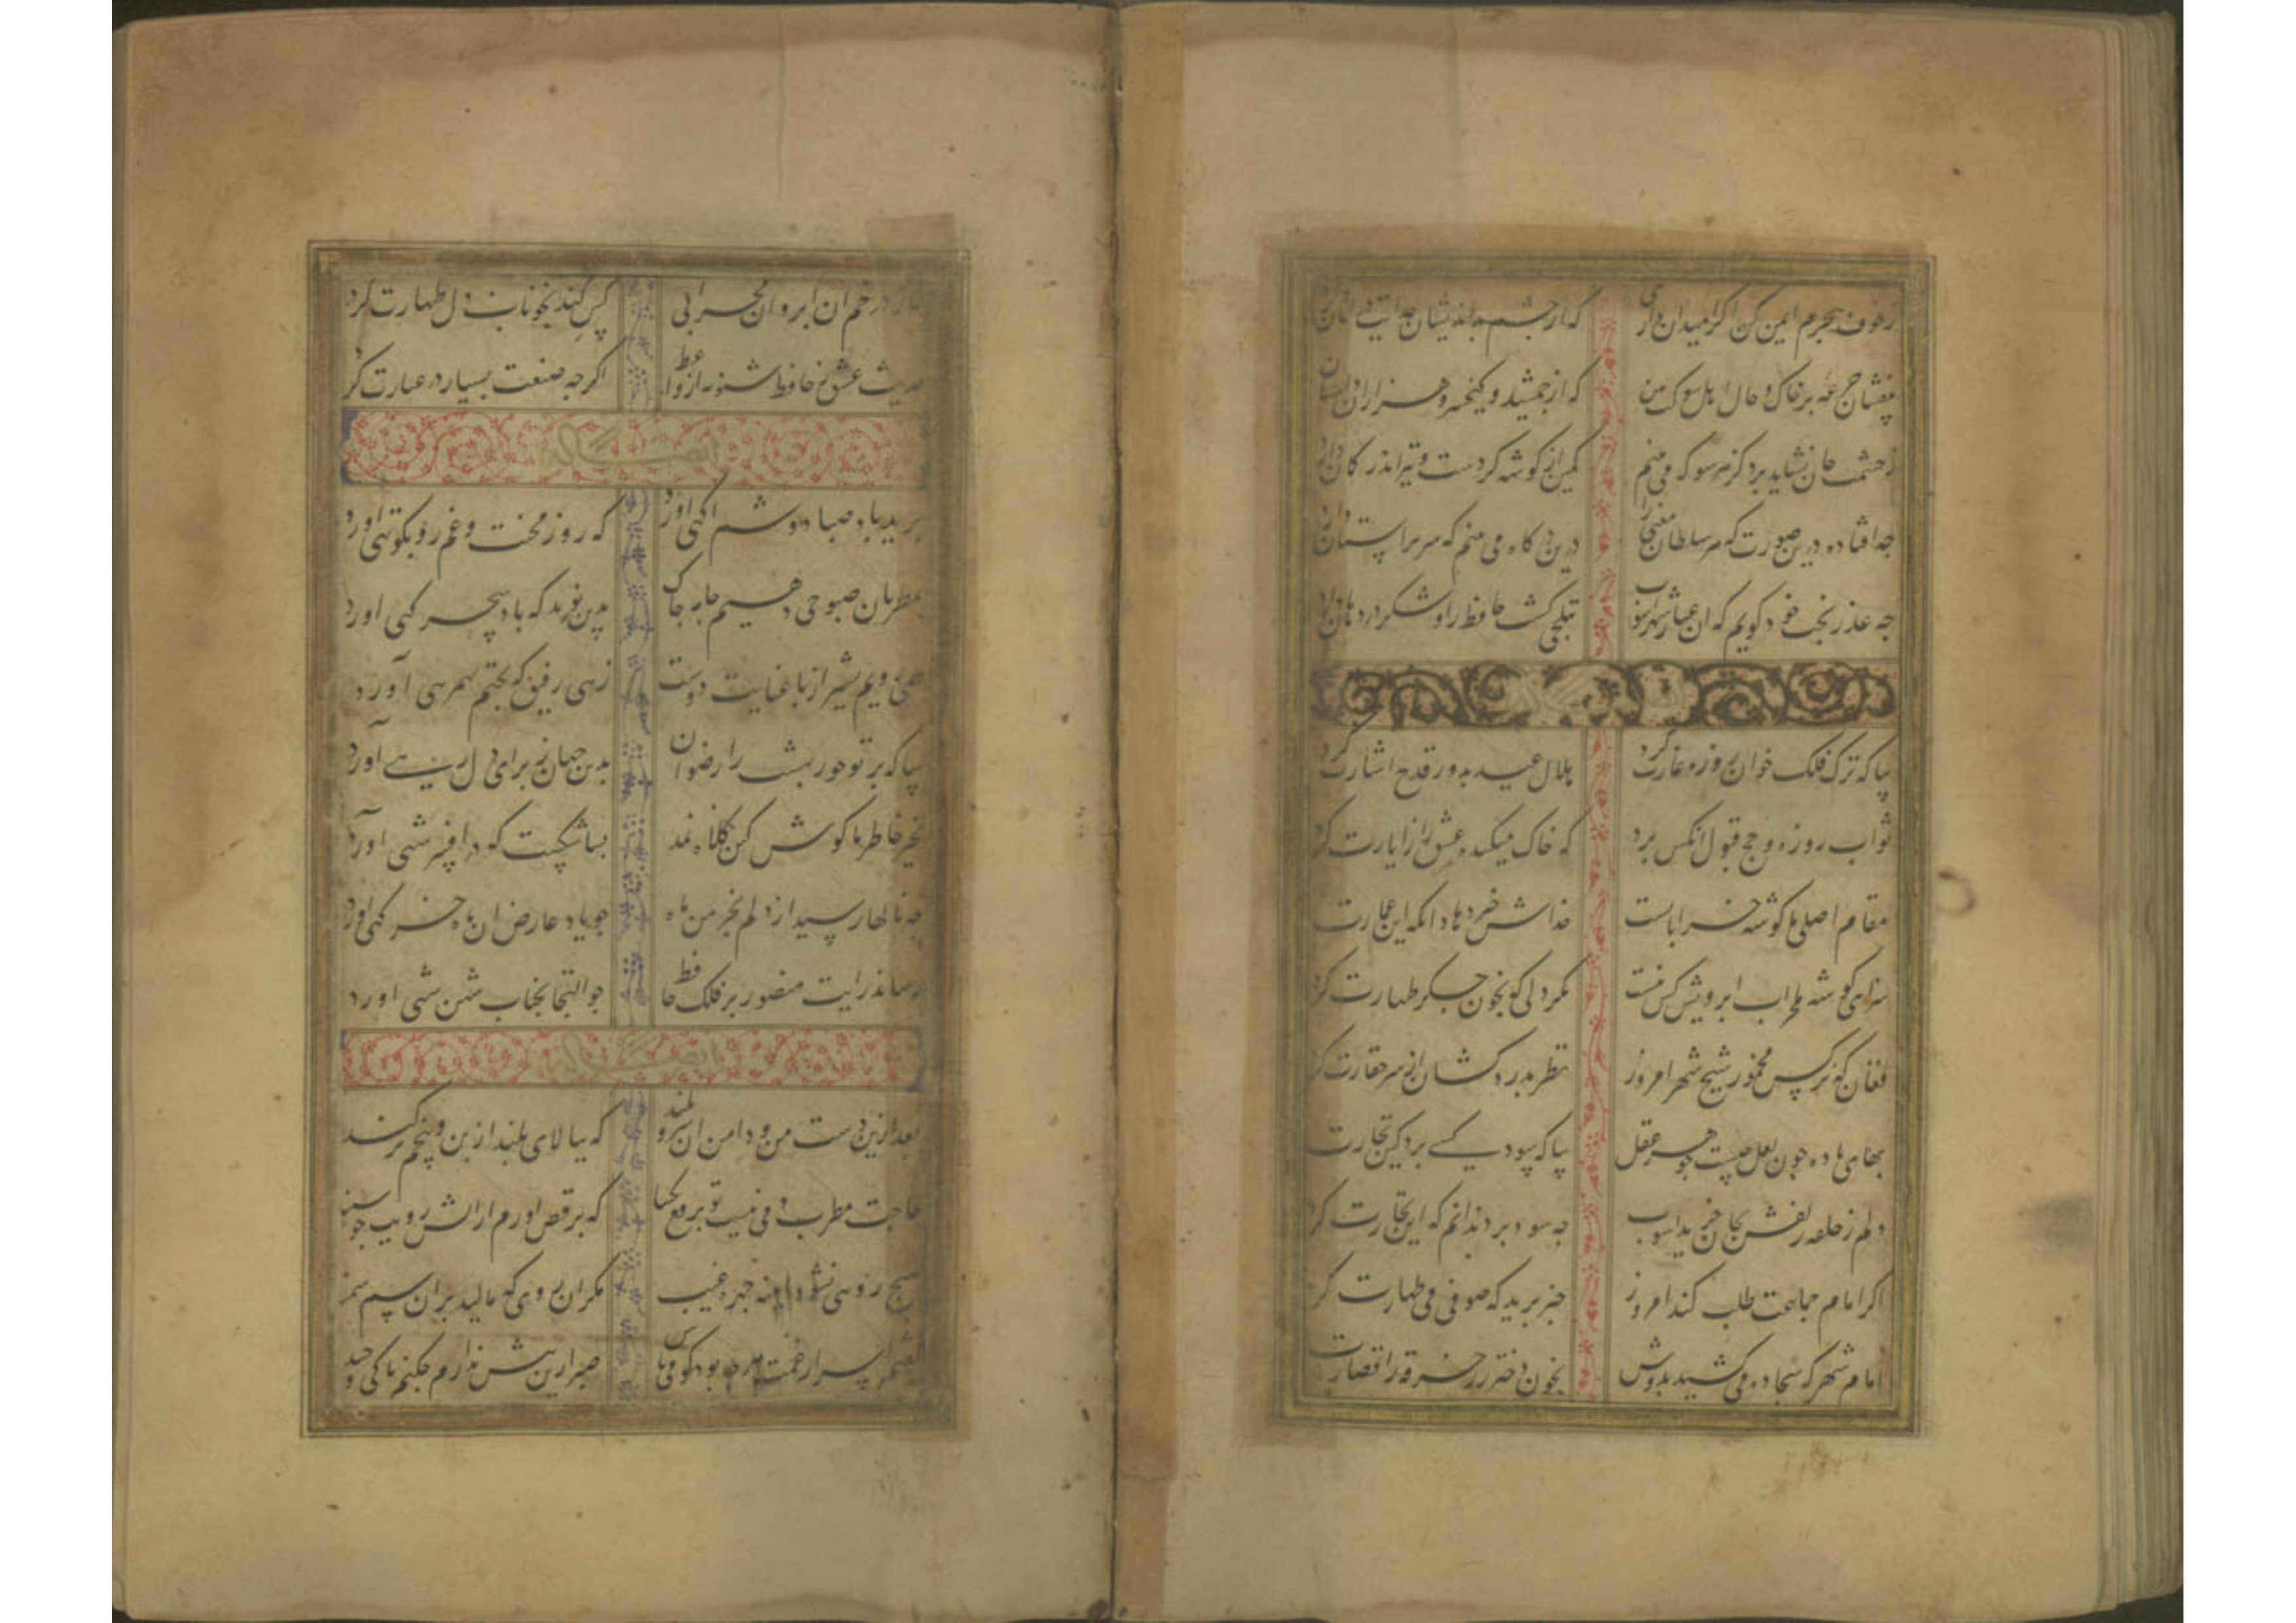 ز خوف هجرم ایمن کن اگر امید آن داری که از چشم بداندیشان خدایت در امان دارد
بیفشان جرعه بر خاک و حال اهل شوکت بین که از جمشید و کیخسرو هزاران داستان دارد
ز چشمت جان نشاید برد کز هر سو که می بینم کمین از گوشه کردست و تیر اندر کمان دارد
چه افتاده درین صورت که هر سلطان معنی را درین درگاه می بینم که سر بر آستان دارد
چه عذر بخت خود گویم که آن عیار شهرآشوب بتلخی کشت حافظ را و شکر در دهان دارد
بیا که ترک فلک خوان روزه غارت کرد هلال عید بدور قدح اشارت کرد
ثواب روزه و حج قبول آنکس برد که خاک میکده عشق را زیارت کرد
مقام اصلی ما گوشه خراباتست خداش خیر دهاد آنکه این عمارت
گوشه محراب ابرویش کس نیست مگر دلی کو بخون جگر طهارت کرد
فغان که نرگس مخمور شیخ شهر امروز نظر بدردکشان از سر حقارت کرد
بهای باده چون لعل چیست جوهر عقل بیا که سود کسی برد کین تجارت
دلم ز حلقه زلفش بجان خرید آشوب چه سود برد ندانم که این تجارت کرد
اگر امام جماعت طلب کند امروز خبر برید که صوفی بمی طهارت کرد
امام شهر که سجاده می کشید بدوش بخون دختر رز خرقه را قصارت
نماز در خم آن ابروان محرابی کسی کند بخوناب دل طهارت کرد
حدیث عشق ز حافظ شنو نه از واعظ اگر چه صنعت بسیار در عبارت کرد
ایضا له
برید باد صبا دوشم آگهی آورد که روز محنت و غم رو بکوتهی آورد
بمطربان صبوحی دهیم جامه چاک بدین نوید که باد سحرگهی آورد
همی رویم بشیراز با عنایت دوست زهی رفیق که بختم بهمرهی آورد
بیا که تو حور بهشت را رضوان بدین جهان ز برای دل رهی آورد
بخیر خاطر ما کوش کین کلاه نمد بسا شکست که در افسر شهی آورد
چه نالها رسید از دلم بخرمن ماه چو یاد عارض آن ماه خرگهی آورد
رساند رایت منصور بر فلک حافظ چو التجا بجناب شهنشهی آورد
ایضا له
بعد ازین دست من و دامن آن سرو بلند که ببالای بلند از بن و بیخم برکند
حاجت مطرب و می نیست تو برقع بگشا که برقص آوردم آتش رویت چو سپند
هیچ رویی نشود آینه غیب مگر آن روی که مالند بر آن سم سمند
گفتم اسرار غمت هر چه بود گو می باش صبر ازین بیش ندارم چکنم تا کی و چند